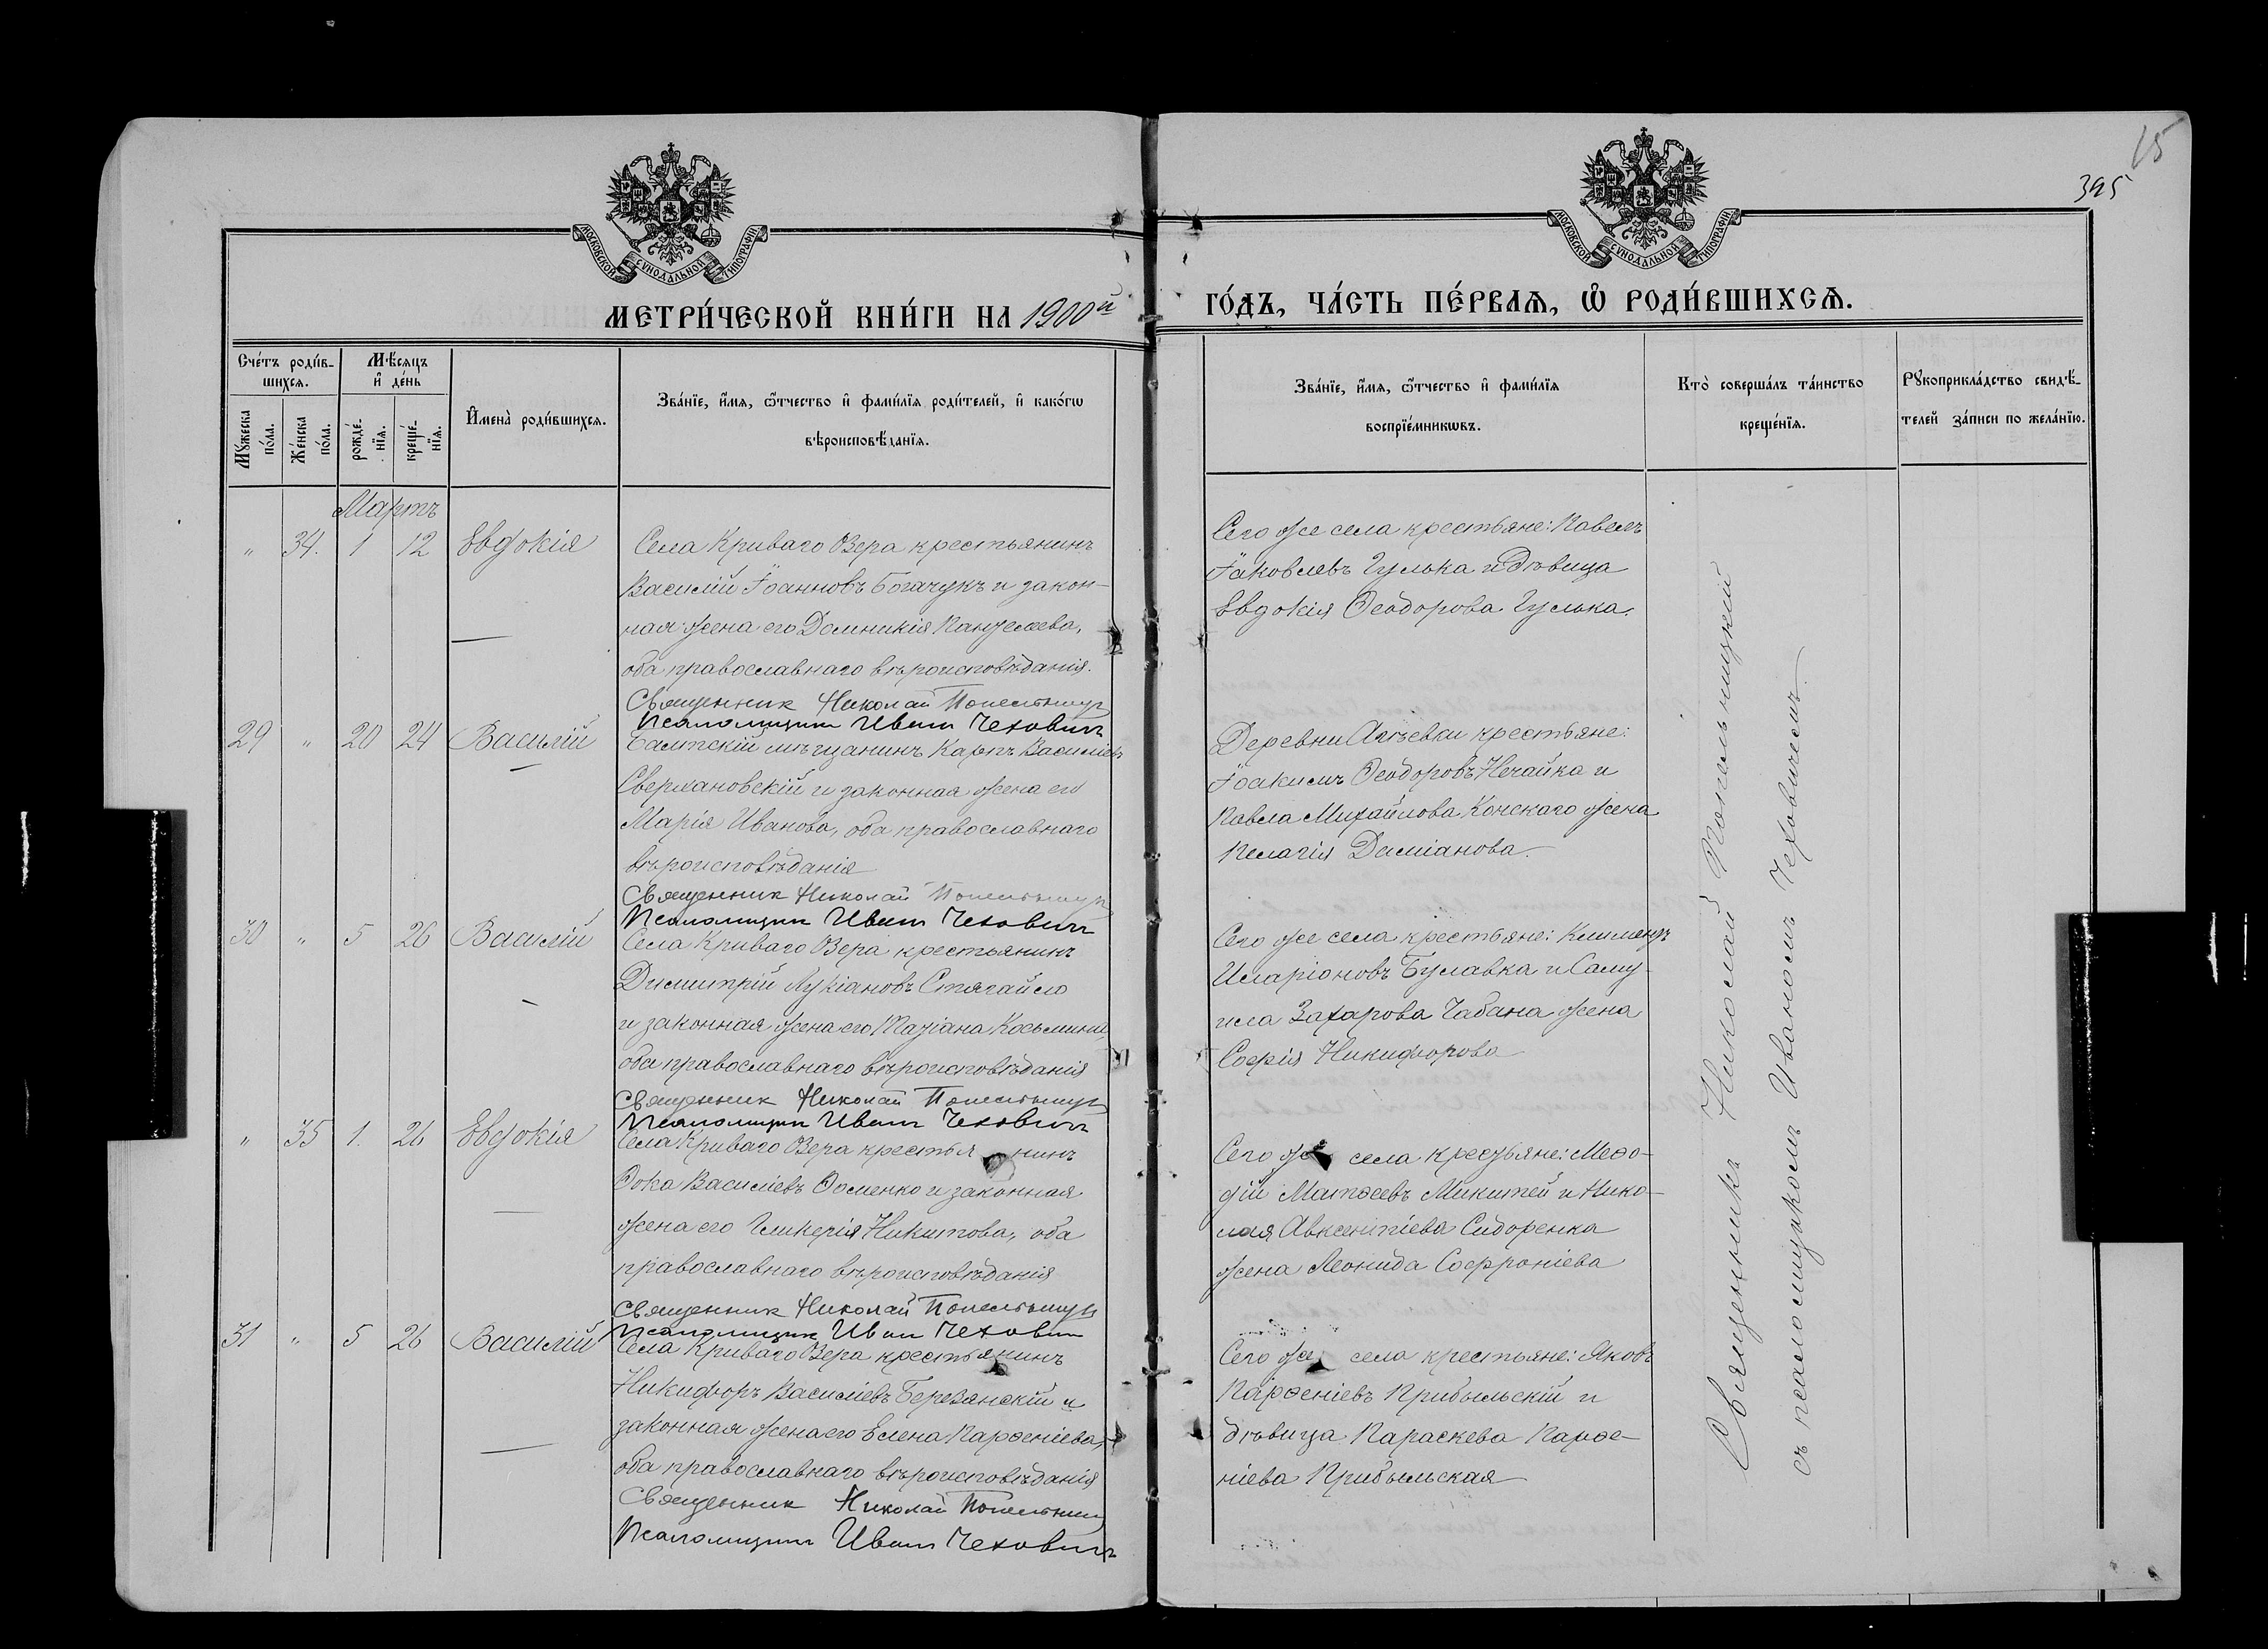 15
395
МОСКОВСКОЙ СѴНОДАЛЬНОЙ ТИПОГРАФІИ
МОСКОВСКОЙ СѴНОДАЛЬНОЙ ТИПОГРАФІИ
МЕТРИ́ЧЕСКОЙ КНИ́ГИ НА 1900й
ГО́ДЪ, ЧА́СТЬ ПЕ́РВАѦ, Ѽ РОДИ́ВШИХСѦ.
Сче́тъ роди́в-
шихсѧ.
Мѣ́сяцъ
и҆ де́нь
Мꙋ́жеска
по́ла.
Же́нска
по́ла.
рожде́-
нїѧ.
креще́-
нїѧ.
И҆мена̀ роди́вшихсѧ.
Зва́нїе, и҆́мѧ, ѻ҆́тчество и҆ фами́лїѧ роди́телей, и҆ како́гѡ
вѣроисповѣ́данїѧ.
Зва́нїе, и҆́мѧ, ѻ҆́тчество и҆ фами́лїѧ
воспрїе́мникѡвъ.
Кто̀ соверша́лъ та́инство
креще́нїѧ.
Рꙋкоприкла́дство свидѣ́-
телей за́писи по жела́нїю.
Мартъ
" 34. 1 12 Евдокія
Села Криваго Озера крестьянинъ
Василій Іоанновъ Богачукъ и закон-
ная жена его Домникія Пантелеева,
оба православнаго вѣроисповѣданія.
Священник Николай Попельницк
Псаломщик Иван Чехович
Сего же села крестьяне: Павелъ
Іаковлевъ Гулька и дѣвица
Евдокія Ѳеодорова Гулька.
29 " 20 24 Василій
Балтскій мѣщанинъ Карпъ Василіевъ
Сверхановскій и законная жена его
Марія Иванова, оба православнаго
вѣроисповѣданія
Священник Николай Попельницк
Псаломщик Иван Чехович
Деревни крестьяне:
Іоакимъ Ѳеодоровъ Нечайка и
Павла Михайлова Конскаго жена
Пелагія Даміанова.
30 " 5 26 Василій
Села Криваго Озера крестьянинъ
Димитрій Лукіановъ Стягайло
и законная жена его Татіана Косьмина,
оба православнаго вѣроисповѣданія
Священник Николай Попельницк
Псаломщик Иван Чехович
Сего же села крестьяне: Климентъ
Иларіоновъ Булавка и Саму-
ила Захарова Чабана жена
Софія Никифорова
" 35 1. 26 Евдокія
Села Криваго Озера крестьянинъ
Ѳока Василіевъ Ѳоменко и законная
жена его Гликерія Никитова, оба
православнаго вѣроисповѣданія
Священник Николай Попельницк
Псаломщик Иван Чехович
Сего же села крестьяне: Меѳо-
дій Матѳеевъ Микитей и Нико-
лая Авксентіева Сидоренка
жена Леонида Софроніева
31 " 5 26 Василій
Села Криваго Озера крестьянинъ
Никифоръ Василіевъ Березянскій и
законная жена его Елена Парѳеніева,
оба православнаго вѣроисповѣданія
Священник Николай Попельниц
Псаломщик Иван Чехович
Сего же села крестьяне: Яковъ
Парѳеніевъ Прибыльскій и
дѣвица Параскева Парѳе-
ніева Прибыльская
Священникъ Николай Попельницкій
съ псаломщикомъ Иваномъ Чеховичемъ